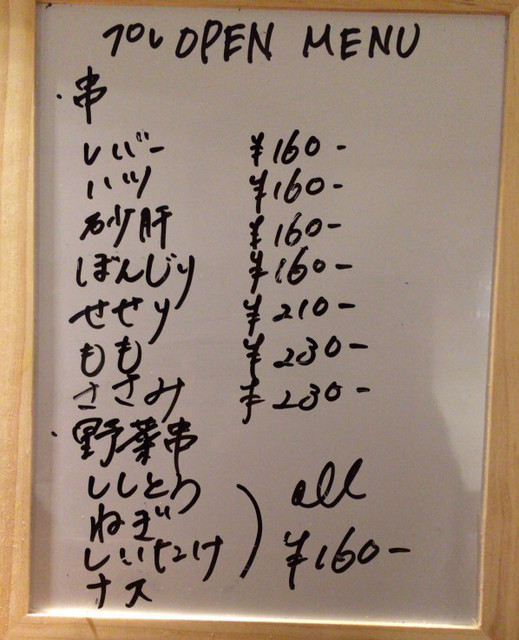 プレ OPEN MENU
・串
レバー ¥160-
ハツ ¥160-
砂肝 ¥160-
ぼんじり ¥160-
せせり ¥210-
もも ¥230-
ささみ ¥230-
・野菜串
ししとう
ねぎ
しいたけ
ナス
all
¥160-